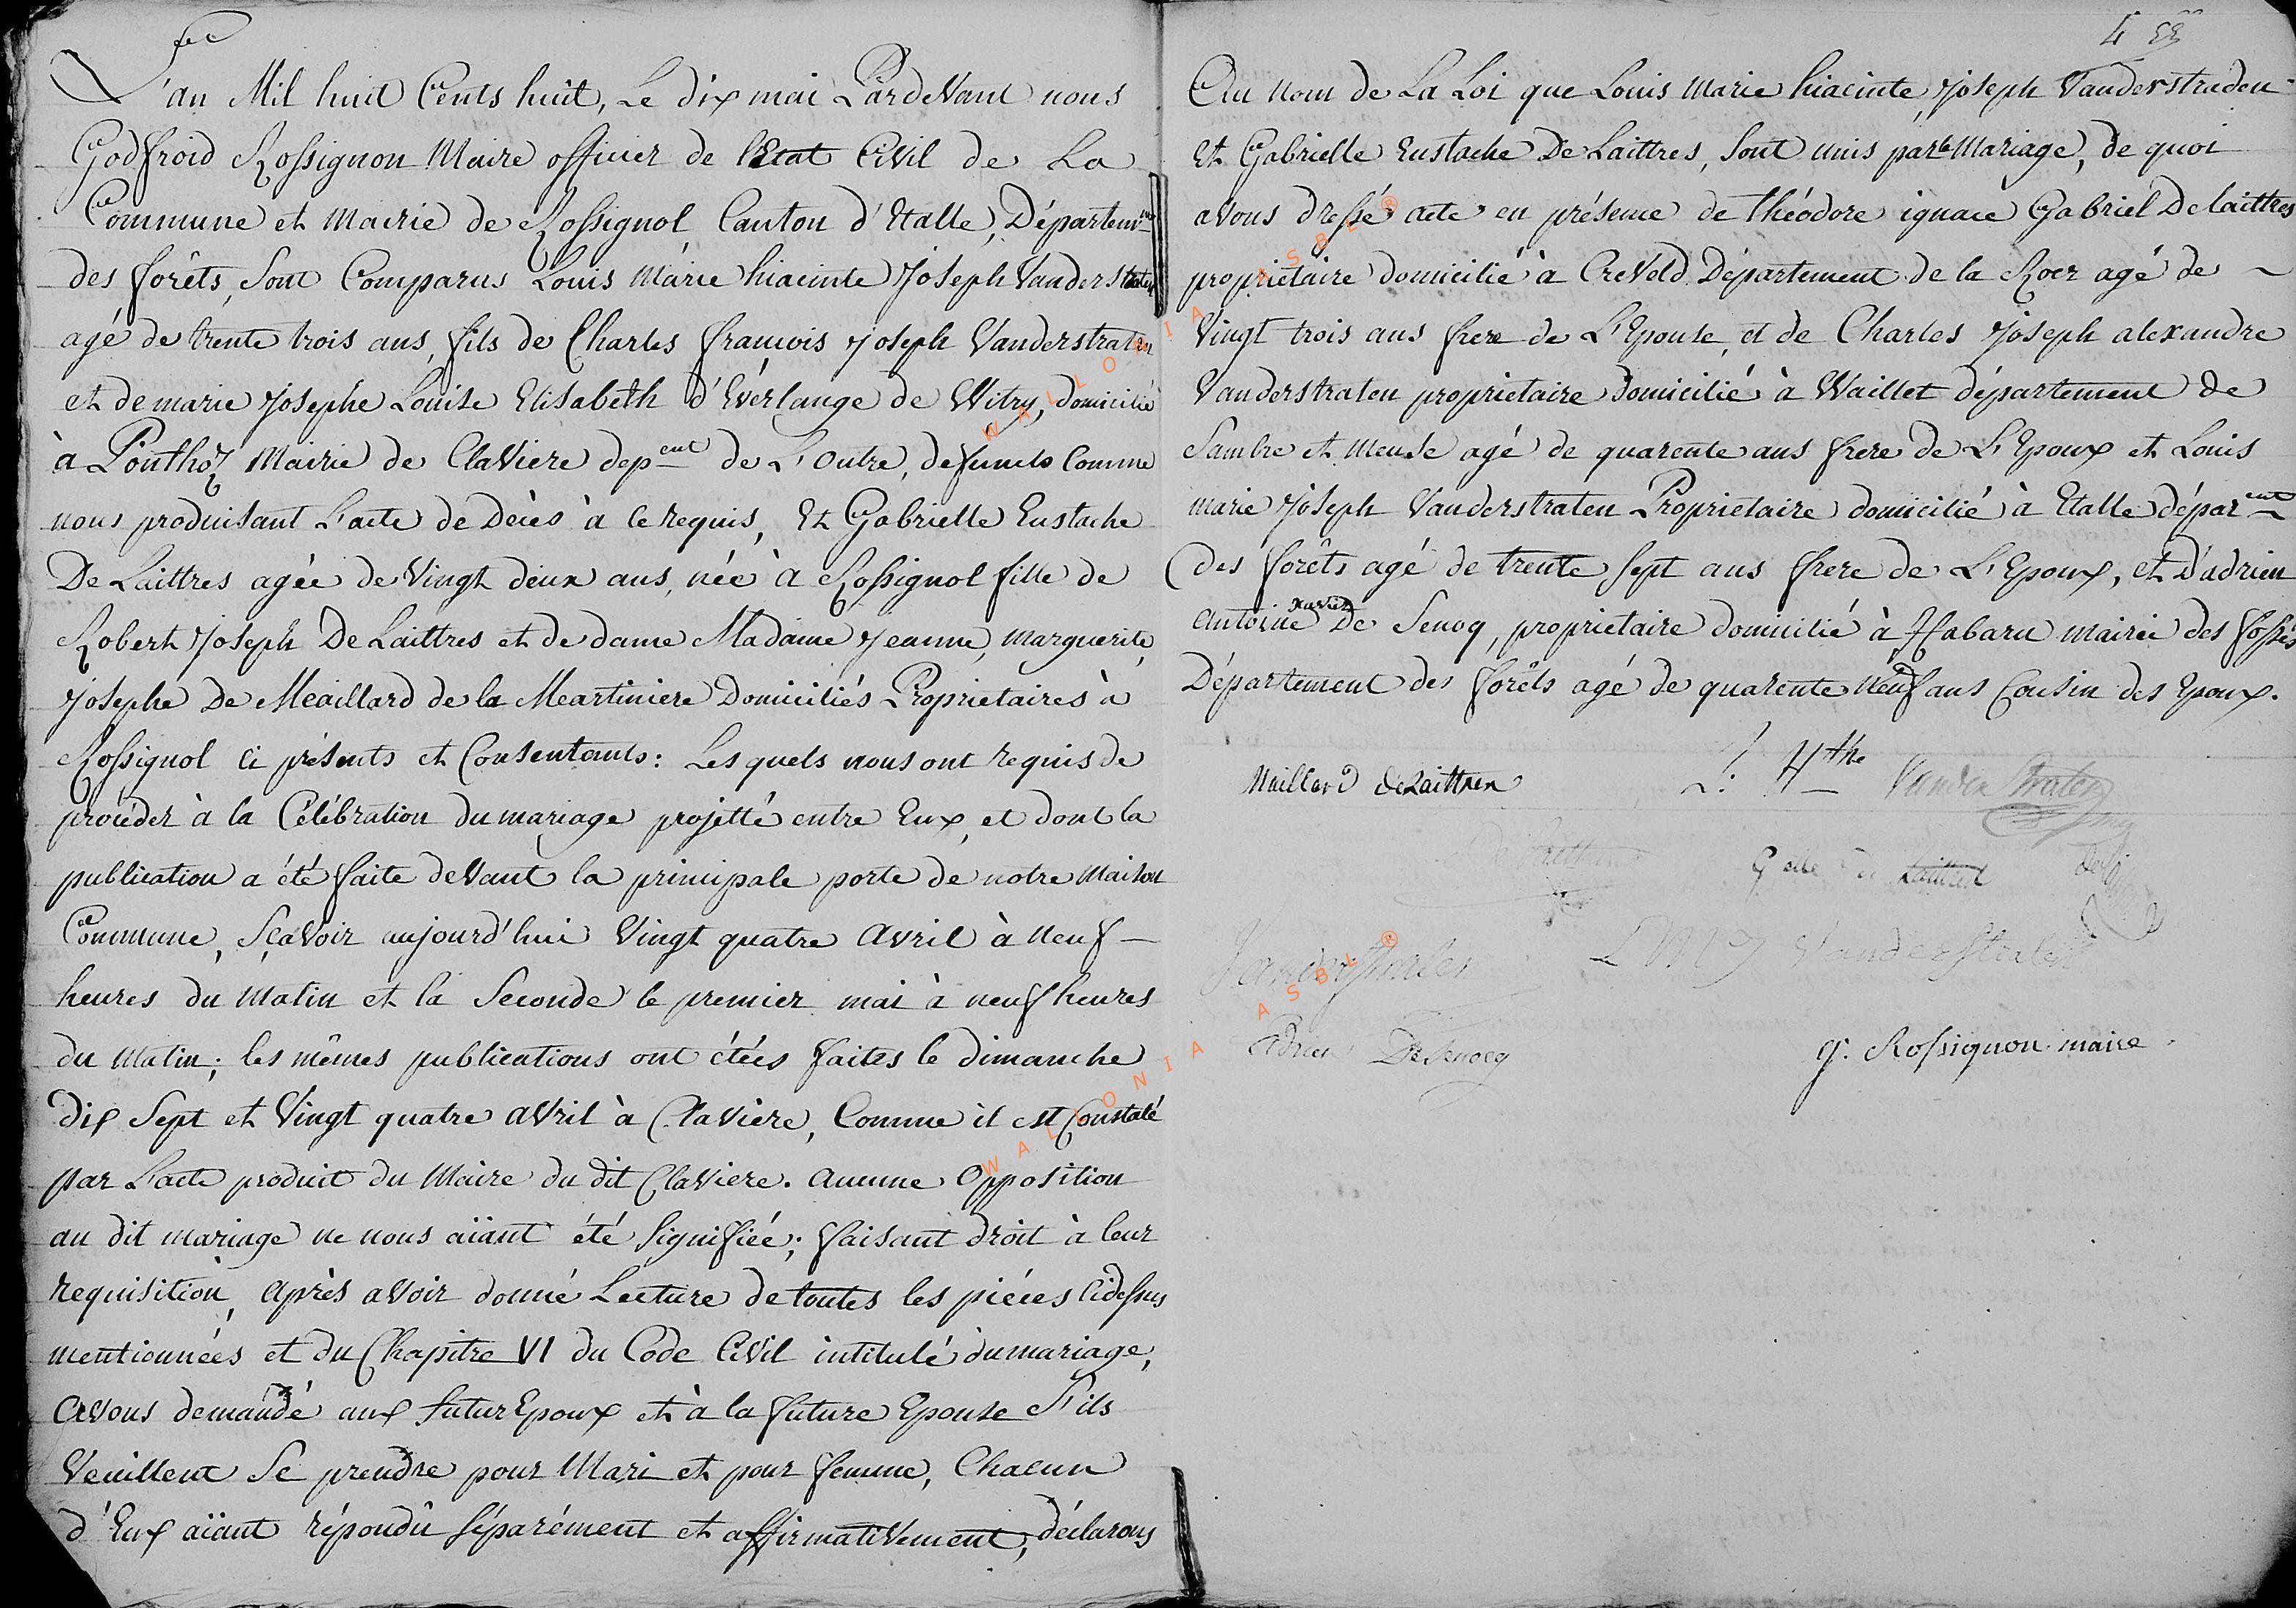 4
L'an Mil huit Cents huit, Le dix mai Pardevant nous
Godfroid Rossignon Maire officier de l'Etat Civil de La
Commune et Mairie de Rossignol Canton d'Etalle, Départem.nt
des forêts, Sont Comparus Louis Marie hiacinte Joseph Vanderstraten
agé de trente trois ans, fils de Charles françois Joseph Vanderstraten
et de marie Josephe Louise Elisabeth d'Everlange de Witry, domicilié
à Ponthoz Mairie de Claviere depent de L'Outre, defunts Comme
nous produisant L'acte de Décès à ce requis, Et Gabrielle Eustache
De Laittres agée de Vingt deux ans, née à Rossignol fille de
Robert Joseph De Laittres et de dame Madame Jeanne, marguerite,
Josephe De Meaillard de la Meartiniere Domiciliés Proprietaires à
Rossignol ci présents et Consentants: Les quels nous ont requis de
procéder à la Célébration du mariage projetté entre Eux, et dont la
publication a été faite devant la principale porte de notre Maison
Commune, Sçavoir aujourd'hui Vingt quatre Avril à neuf
heures du Matin et la Seconde le premier mai à neuf heures
du Matin; les mêmes publications ont étées faites le dimanche
dix Sept et Vingt quatre avril à Claviere, Comme il est Constaté
par L'acte produit du Maire du dit Claviere. Aucune Opposition
au dit mariage ne nous aïant été Signifiée; faisant droit à leur
requisition, Après avoir donné Lecture de toutes les piéces Cidessus
mentionnées et du Chapitre VI du Code Civil intitulé du mariage,
Avons demandé aux futur Epoux et à la future Epouse S'ils
Veuillent Se prendre pour Mari et pour femme, Chacun
d'Eux aïant répondû Séparément et affirmativement, déclarons
Au Nom de La Loi que Louis Marie hiacinte, Joseph Vanderstraden
et Gabrielle Eustache De Laittres, Sont unis par le Mariage, de quoi
avons dressé acte en présence de théodore ignace Gabriel De laittres
propriétaire domicilié à Creveld Département de la Roer agé de
Vingt trois ans frere de L'Epouse, et de Charles Joseph alexandre
Vanderstraten proprietaire domicilié à Waillet département de
Sambre et Meuse agé de quarente ans frere de L'Epoux et Louis
marie Joseph Vanderstraten Proprietaire domicilié à Etalle déparent
des forêts agé de trente Sept ans frere de L'Epoux, et D'adrien
antoine xavier De Senoq, proprietaire domicilié à Habaru mairie des fossés
Département des forêts agé de quarente Neuf ans Cousin des Epoux.
Maillard deLaittres
L. Hthe Vander Straten
Gelle de Laittres
Vanderstraten
L M J Vanderstraten
Adrien De Senocq
g. Rossignon maire
WALLONIA ASBL ®
WALLONIA ASBL ®